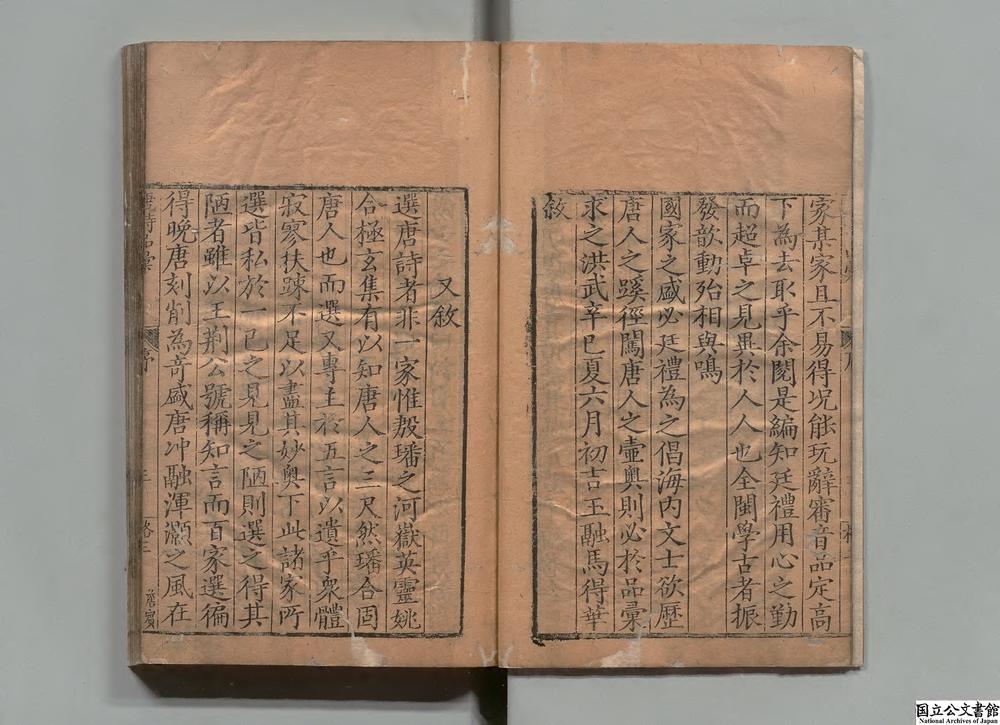 家某家且不易得況能玩辭審音品定高
下為去取乎余閱是編知廷禮用心之勤
而超卓之見異於人人也全閩學古者振
發歆動殆相與鳴
國家之盛必廷禮為之倡海内文士欲歷
唐人之蹊徑闖唐人之壼奥則必於品彙
求之洪武辛巳夏六月初吉玉融馬得華
敘
又敘
選唐詩者非一家惟殷璠之河嶽英靈姚
合極玄集有以知唐人之三尺然璠合固
唐人也而選又專主於五言以遺乎衆體
寂寥扶踈不足以盡其妙奥下此諸家所
選皆私於一已之見見之陋則選之得其
陋者雖以王荆公號稱知言而百家選徧
得晚唐刻削為竒盛唐冲融渾灝之風在
唐詩品彙
序
國立公文書館
National Archives of Japan